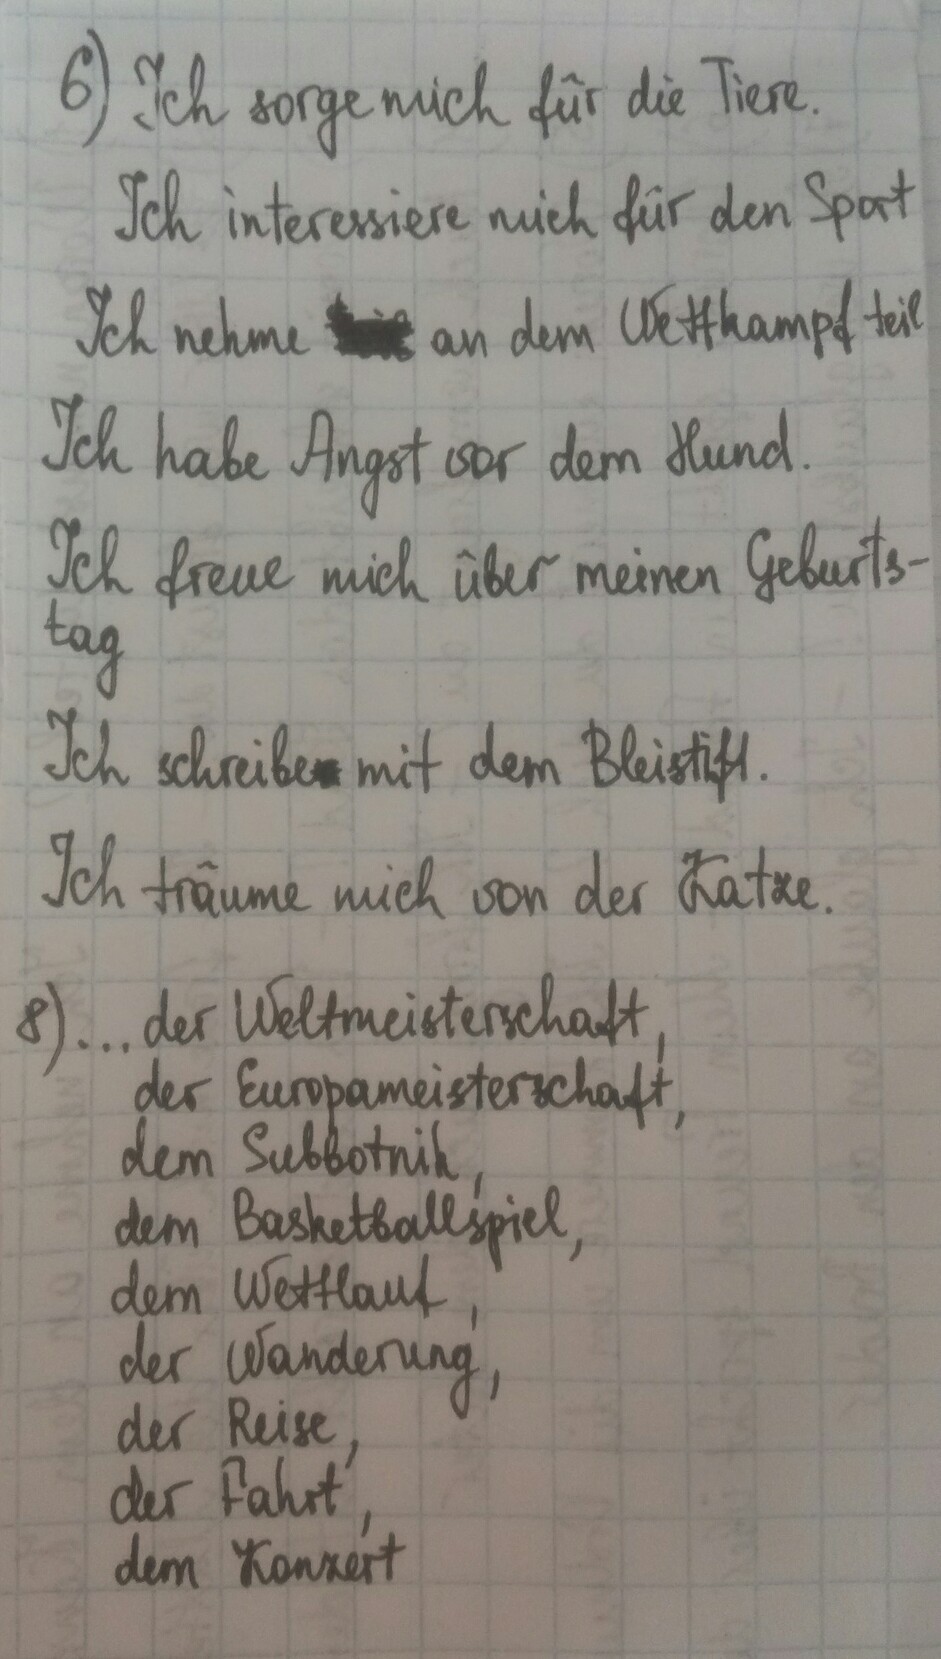 6) Ich sorge mich für die Tiere.
Ich interessiere mich für den Sport
Ich nehme an dem Wettkampf teil
Ich habe Angst vor dem Hund.
Ich freue mich über meinen Geburts-
tag
Ich schreibe mit dem Bleistift.
Ich träume mich von der Katze.
8) ... der Weltmeisterschaft,
der Europameisterschaft,
dem Subbotnik,
dem Basketballspiel,
dem Wettlauf,
der Wanderung,
der Reise,
der Fahrt,
dem Konzert